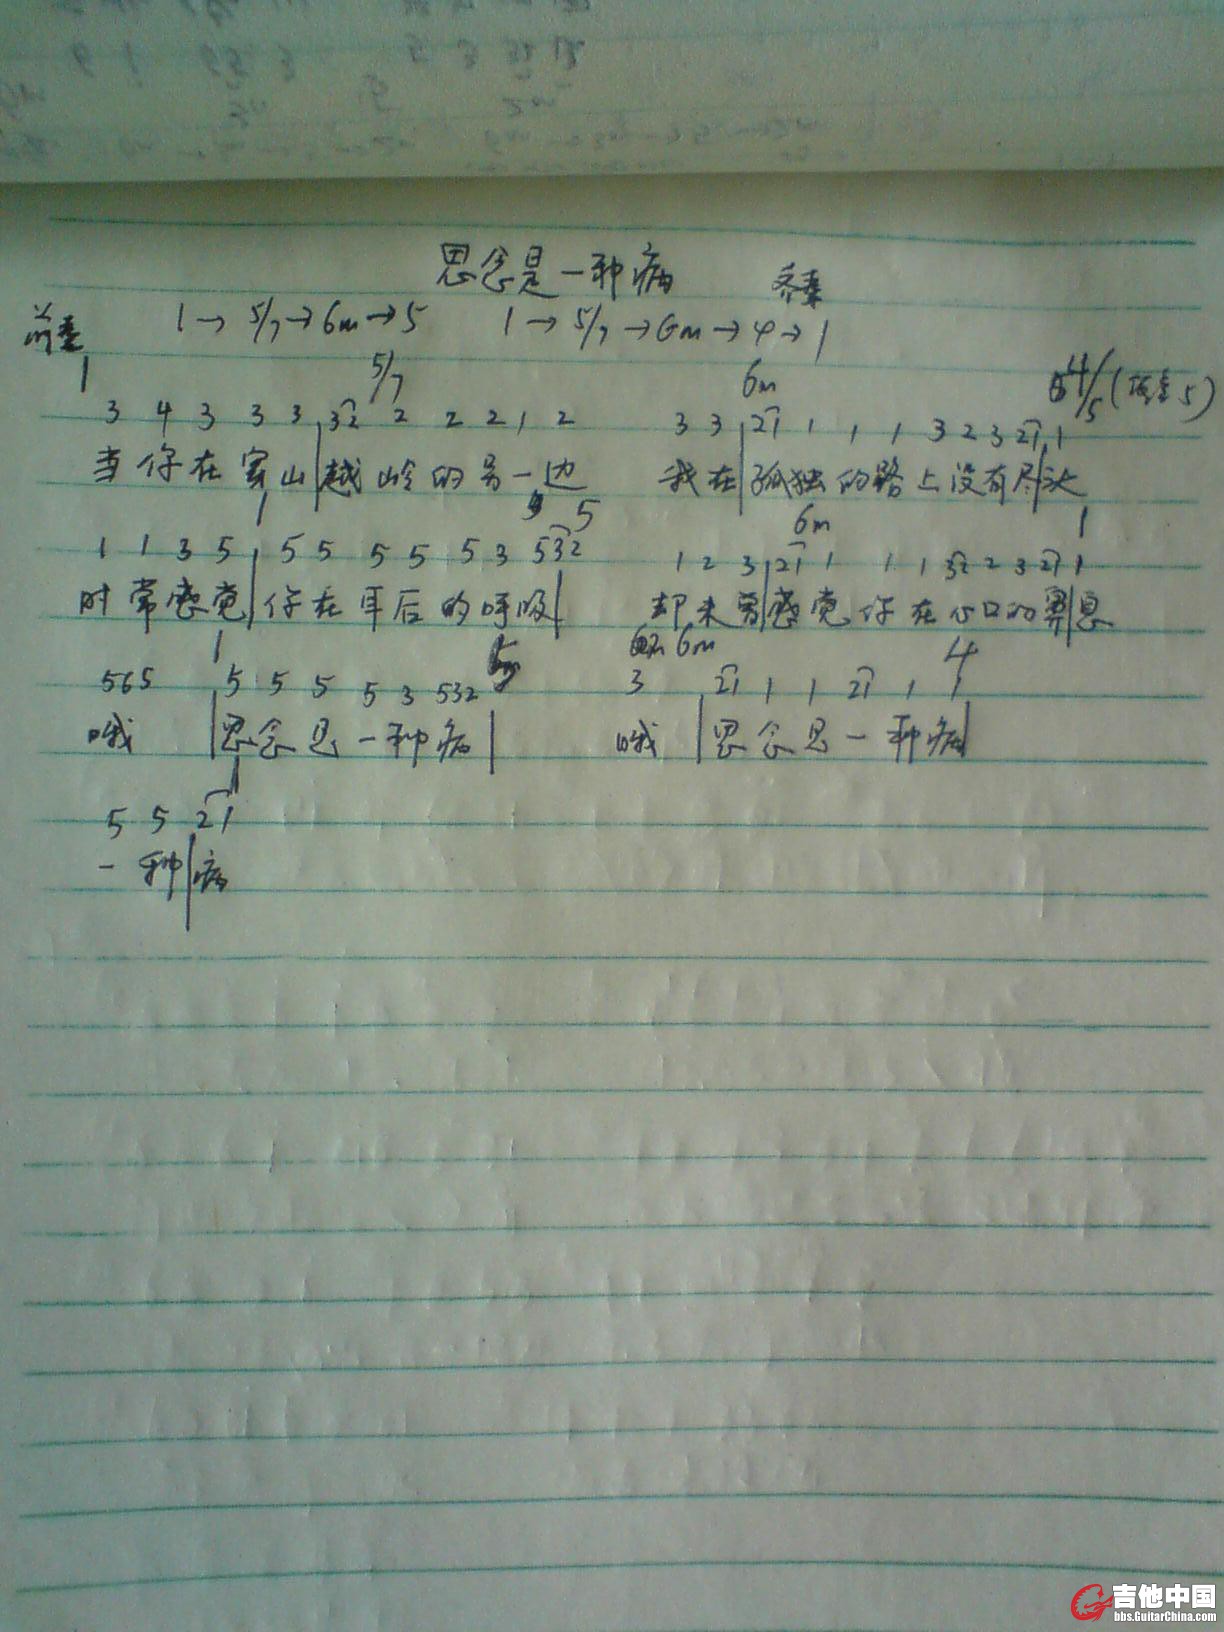 思念是一种病 齐秦
前奏 1→ 5/7→6m→5 1→ 5/7→6m→4→1
1 5/7 6m 4/5 (低音5)
3 4 3 3 3 32 2 2 2 1 2 3 3 21 1 1 1 3 2 3 21 1
当你在穿山|越岭的另一边 我在|孤独的路上没有尽|头
1 5 6m 1
1 1 3 5 5 5 5 5 5 3 532 1 2 3 21 1 1 1 32 2 3 21 1
时常感觉|你在耳后的呼吸| 却未曾|感觉你在心口的鼻|息
1 5 6m 4
565 5 5 5 5 3 532 3 21 1 1 21 1 1
哦 |思念是一种病| 哦 |思念是一种病|
1
5 5 21
一种|病
吉他中国
bbs.GuitarChina.com